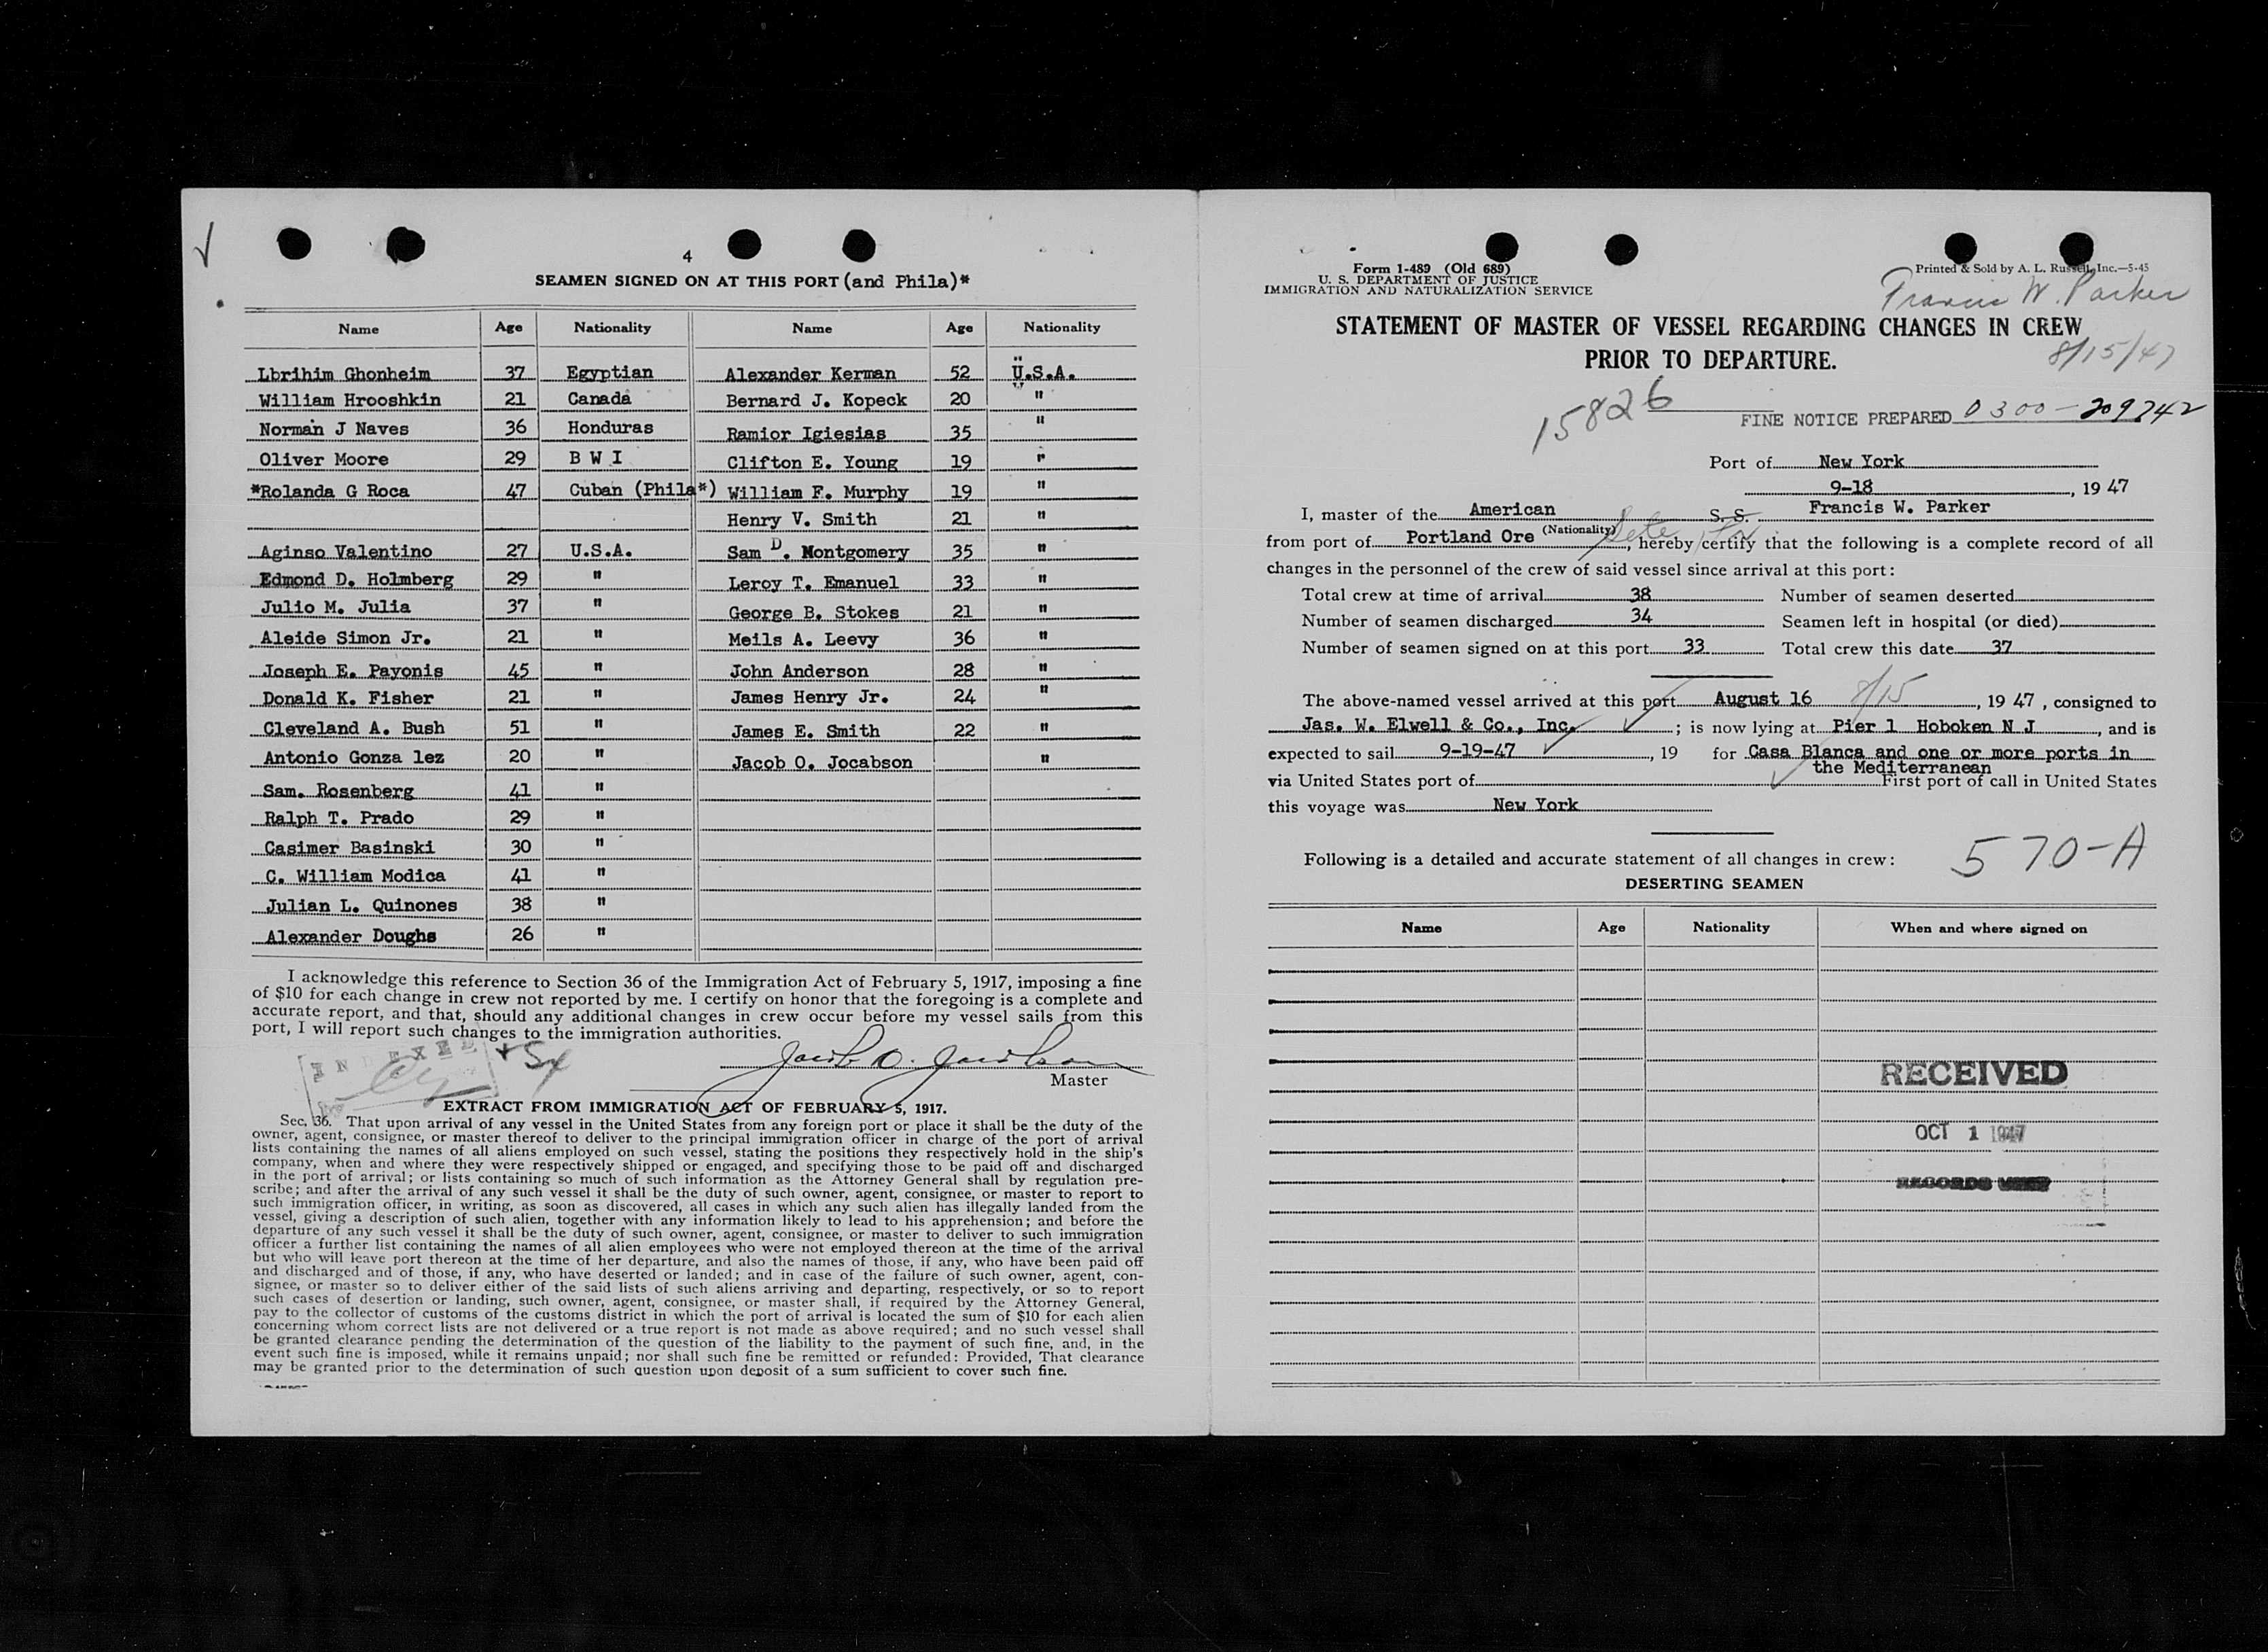 4
SEAMEN SIGNED ON AT THIS PORT (and Phila)*
Name Age Nationality Name Age Nationality
Lbrihim Ghonheim 37 Egyptian Alexander Kerman 52 U.S.A.
William Hrooshkin 21 Canada Bernard J. Kopeck 20 "
Norman J Naves 36 Honduras Ramior Igiesias 35 "
Oliver Moore 29 B W I Clifton E. Young 19 "
*Rolanda G Roca 47 Cuban (Phila*) William F. Murphy 19 "
Henry V. Smith 21 "
Aginso Valentino 27 U.S.A. Sam D. Montgomery 35 "
Edmond D. Holmberg 29 " Leroy T. Emanuel 33 "
Julio M. Julia 37 " George B. Stokes 21 "
Aleide Simon Jr. 21 " Meils A. Leevy 36 "
Joseph E. Payonis 45 " John Anderson 28 "
Donald K. Fisher 21 " James Henry Jr. 24 "
Cleveland A. Bush 51 " James E. Smith 22 "
Antonio Gonza lez 20 " Jacob O. Jocabson "
Sam. Rosenberg 41 "
Ralph T. Prado 29 "
Casimer Basinski 30 "
C. William Modica 41 "
Julian L. Quinones 38 "
Alexander Doughs 26 "
I acknowledge this reference to Section 36 of the Immigration Act of February 5, 1917, imposing a fine
of $10 for each change in crew not reported by me. I certify on honor that the foregoing is a complete and
accurate report, and that, should any additional changes in crew occur before my vessel sails from this
port, I will report such changes to the immigration authorities.
INDEXED
Jacob O. Jacobson
Master
EXTRACT FROM IMMIGRATION ACT OF FEBRUARY 5, 1917.
Sec. 36. That upon arrival of any vessel in the United States from any foreign port or place it shall be the duty of the
owner, agent, consignee, or master thereof to deliver to the principal immigration officer in charge of the port of arrival
lists containing the names of all aliens employed on such vessel, stating the positions they respectively hold in the ship's
company, when and where they were respectively shipped or engaged, and specifying those to be paid off and discharged
in the port of arrival; or lists containing so much of such information as the Attorney General shall by regulation pre-
scribe; and after the arrival of any such vessel it shall be the duty of such owner, agent, consignee, or master to report to
such immigration officer, in writing, as soon as discovered, all cases in which any such alien has illegally landed from the
vessel, giving a description of such alien, together with any information likely to lead to his apprehension; and before the
departure of any such vessel it shall be the duty of such owner, agent, consignee, or master to deliver to such immigration
officer a further list containing the names of all alien employees who were not employed thereon at the time of the arrival
but who will leave port thereon at the time of her departure, and also the names of those, if any, who have been paid off
and discharged and of those, if any, who have deserted or landed; and in case of the failure of such owner, agent, con-
signee, or master so to deliver either of the said lists of such aliens arriving and departing, respectively, or so to report
such cases of desertion or landing, such owner, agent, consignee, or master shall, if required by the Attorney General,
pay to the collector of customs of the customs district in which the port of arrival is located the sum of $10 for each alien
concerning whom correct lists are not delivered or a true report is not made as above required; and no such vessel shall
be granted clearance pending the determination of the question of the liability to the payment of such fine, and, in the
event such fine is imposed, while it remains unpaid; nor shall such fine be remitted or refunded: Provided, That clearance
may be granted prior to the determination of such question upon deposit of a sum sufficient to cover such fine.
Form 1-489 (Old 689)
U. S. DEPARTMENT OF JUSTICE
IMMIGRATION AND NATURALIZATION SERVICE
Printed & Sold by A. L. Russell, Inc.—5-45
Francis W. Parker
STATEMENT OF MASTER OF VESSEL REGARDING CHANGES IN CREW
PRIOR TO DEPARTURE.
8/15/47
15826
FINE NOTICE PREPARED 0300-209742
Port of New York
9-18, 19 47
I, master of the American S. S. Francis W. Parker
(Nationality)
from port of Portland Ore, hereby certify that the following is a complete record of all
changes in the personnel of the crew of said vessel since arrival at this port:
Total crew at time of arrival 38 Number of seamen deserted
Number of seamen discharged 34 Seamen left in hospital (or died)
Number of seamen signed on at this port 33 Total crew this date 37
The above-named vessel arrived at this port August 16 8/15, 19 47, consigned to
Jas. W. Elwell & Co., Inc. ; is now lying at Pier 1 Hoboken N J, and is
expected to sail 9-19-47, 19 for Casa Blanca and one or more ports in
the Mediterranean
via United States port of First port of call in United States
this voyage was New York
Following is a detailed and accurate statement of all changes in crew:
570-A
DESERTING SEAMEN
Name Age Nationality When and where signed on
RECEIVED
OCT 1 1947
RECORDS